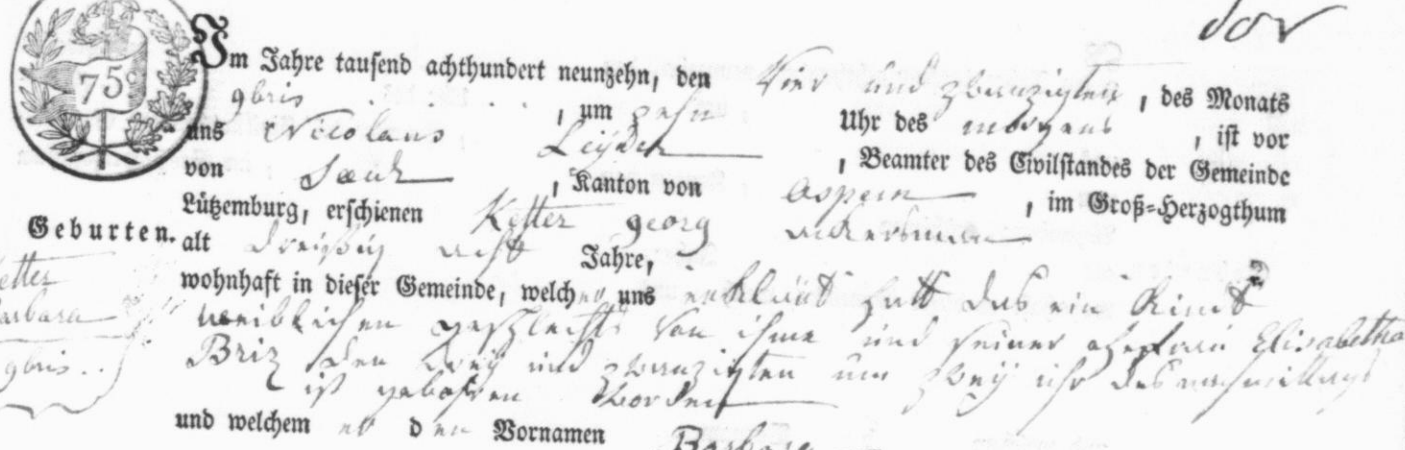 75c
Im Jahre tausend achthundert neunzehn, den Vier und zwanzigten, des Monats
9bris, um zehn Uhr des morgens, ist vor
uns Nicolaus Leyder, Beamter des Civilstandes der Gemeinde
von, Kanton von, im Groß-Herzogthum
Lützemburg, erschienen Ketter georg ackersman
Geburten.
alt dreißig acht Jahre,
wohnhaft in dieser Gemeinde, welcher uns erklärt hatt das ein Kindt
weiblichen geschlechts von ihme und seiner ehefrau Elisabetha
Briz den drey und zwanzigten um zwey uhr des nachmittags
ist gebohren worden
und welchem er den Vornamen Barbara
etter
arbara
9bris..